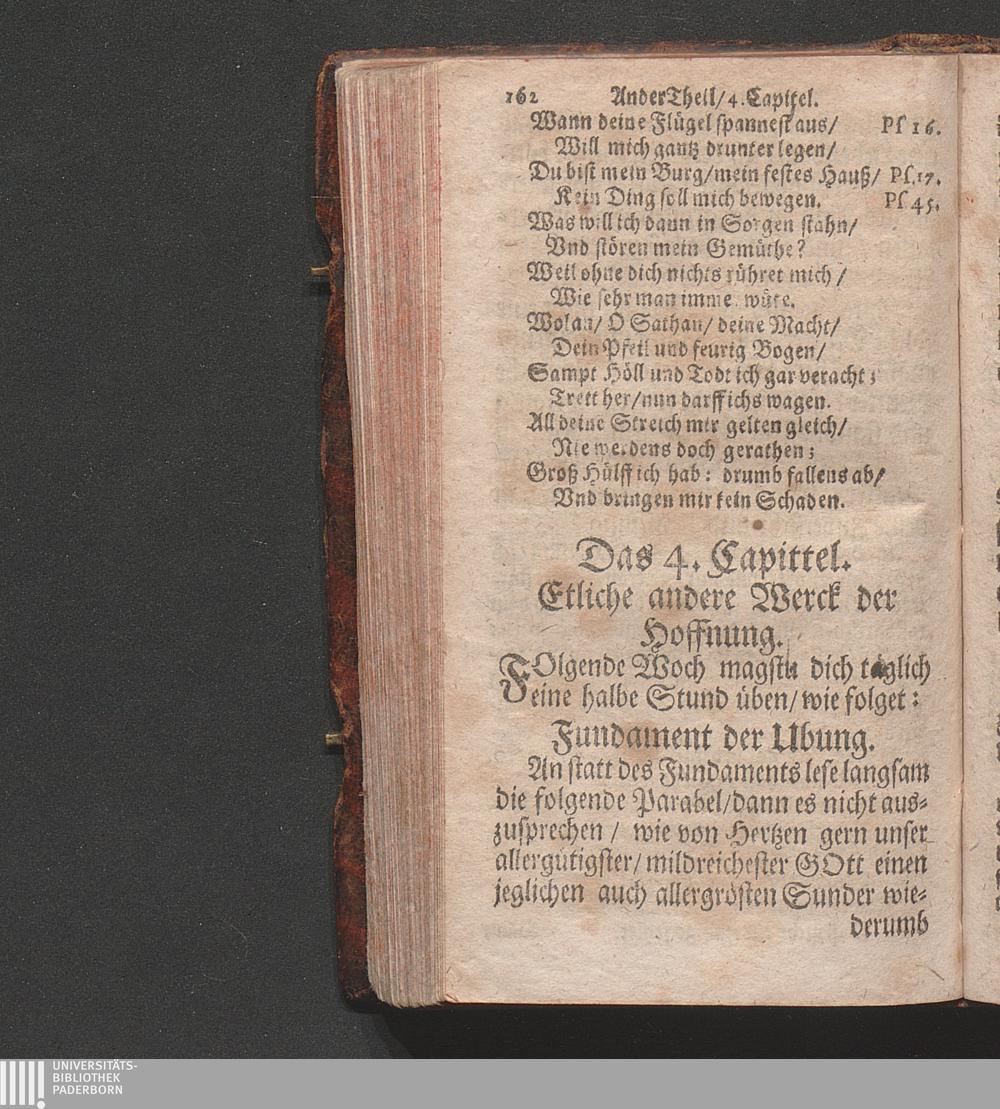 162 Ander Theil/ 4. Capitel.
Wann deine Flügel spannest aus/ Ps 16.
Will mich gantz drunter legen/
Du bist mein Burg/ mein festes Hauß/ Ps. 17.
Kein Ding soll mich bewegen. Ps 45.
Was will ich dann in Sorgen stahn/
Vnd stören mein Gemüthe?
Weil ohne dich nichts rühret mich/
Wie sehr man imme. wüte.
Wolan/ O Sathan/ deine Macht/
Dein Pfeil und feurig Bogen/
Sampt Höll und Todt ich gar veracht;
Trett her/ nun darff ichs wagen.
All deine Streich mir gelten gleich/
Nie werdens doch gerathen;
Groß Hülff ich hab: drumb fallens ab/
Vnd bringen mir kein Schaden.
Das 4. Capittel.
Etliche andere Werck der
Hoffnung.
FOlgende Woch magstu dich täglich
eine halbe Stund üben/ wie folget:
Fundament der Ubung.
An statt des Fundaments lese langsam
die folgende Parabel/ dann es nicht aus-
zusprechen/ wie von Hertzen gern unser
allergütigster/ mildreichester GOtt einen
jeglichen auch allergrösten Sunder wie-
derumb
UNIVERSITÄTS-
BIBLIOTHEK
PADERBORN